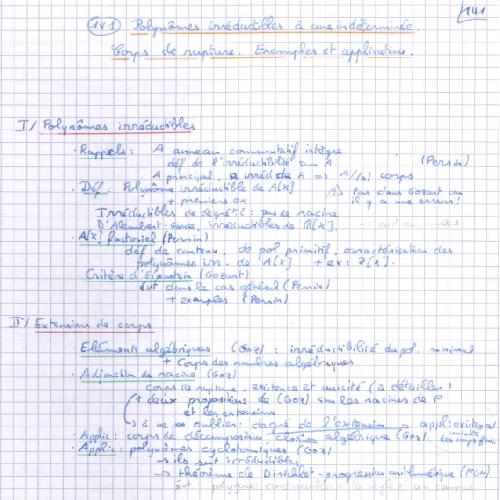 141
141 Polynômes irréductibles à une indéterminée.
Corps de rupture. Exemples et applications.
I/ Polynômes irréductibles
· Rappels : A anneau commutatif intègre
déf de l'irréductibilité sur A (Perrin)
A principal, a irréd de A => A/(a) corps
· Déf. Polynôme irréductible de A[X] /!\ Pas dans Gozart car
+ premiers ex il y a une erreur !
Irréductibles de degré : pas de racine
D'Alembert-Gauss, irréductibles de R[X].
· A[X] factoriel (Perrin)
déf de contenu, de pol primitif, caractérisation des
polynômes irr. de A[X] + ex : Z[X].
Critère d'Eisenstein (Gozart)
dans le cas général (Perrin)
+ exemples (Perrin)
II/ Extensions de corps
· Eléments algébriques (Goz) : irréductibilité du pol. minimal
+ Corps des nombres algébriques
· Adjonction de racine (Goz)
corps de rupture, existence et unicité (à détailler)
+ deux propositions de (Goz) sur les racines de P
et les extensions
à ne pas oublier : degré de l'extension
· Applic : corps de décomposition, clôture algébrique (Goz).
· Applic : polynômes cyclotomiques (Goz)
-> ils sont irréductibles
-> théorème de Dirichlet - progression arithmétique